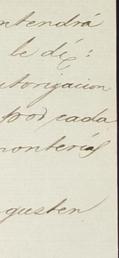 ntendrá
le dé:
utorizacion
trod cada
monterías
gusten